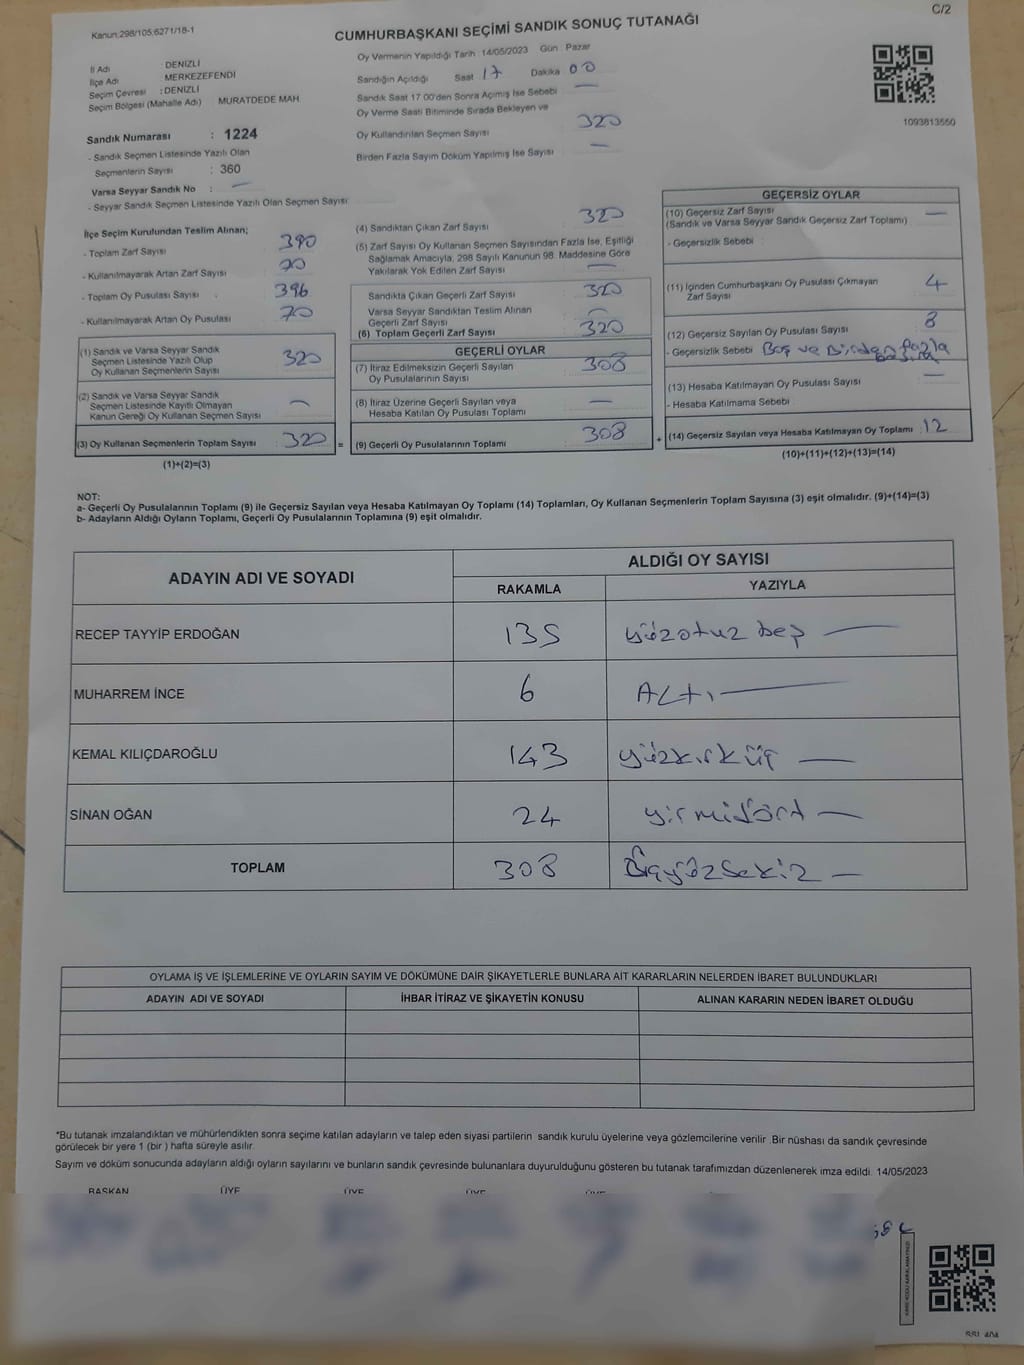 C/2
Kanun:298/105;6271/18-1
CUMHURBAŞKANI SEÇİMİ SANDIK SONUÇ TUTANAĞI
İl Adı : DENİZLİ
İlçe Adı : MERKEZEFENDİ
Seçim Çevresi : DENİZLİ
Seçim Bölgesi (Mahalle Adı) : MURATDEDE MAH
Sandık Numarası : 1224
- Sandık Seçmen Listesinde Yazılı Olan
Seçmenlerin Sayısı : 360
Varsa Seyyar Sandık No : —
- Seyyar Sandık Seçmen Listesinde Yazılı Olan Seçmen Sayısı:
Oy Vermenin Yapıldığı Tarih :14/05/2023 Gün : Pazar
Sandığın Açıldığı Saat : 17 Dakika : 00
Sandık Saat 17.00'den Sonra Açımış İse Sebebi : —
Oy Verme Saati Bitiminde Sırada Bekleyen ve
Oy Kullandırılan Seçmen Sayısı : 320
Birden Fazla Sayım Döküm Yapılmış İse Sayısı : —
1093813550
İlçe Seçim Kurulundan Teslim Alınan;
- Toplam Zarf Sayısı : 390
- Kullanılmayarak Artan Zarf Sayısı : 70
- Toplam Oy Pusulası Sayısı : 396
- Kullanılmayarak Artan Oy Pusulası : 70
(1) Sandık ve Varsa Seyyar Sandık
Seçmen Listesinde Yazılı Olup
Oy Kullanan Seçmenlerin Sayısı : 320
(2) Sandık ve Varsa Seyyar Sandık
Seçmen Listesinde Kayıtlı Olmayan
Kanun Gereği Oy Kullanan Seçmen Sayısı : —
(3) Oy Kullanan Seçmenlerin Toplam Sayısı : 320
(1)+(2)=(3)
(4) Sandıktan Çıkan Zarf Sayısı : 320
(5) Zarf Sayısı Oy Kullanan Seçmen Sayısından Fazla İse, Eşitliği
Sağlamak Amacıyla, 298 Sayılı Kanunun 98. Maddesine Göre
Yakılarak Yok Edilen Zarf Sayısı : —
Sandıkta Çıkan Geçerli Zarf Sayısı : 320
Varsa Seyyar Sandıktan Teslim Alınan
Geçerli Zarf Sayısı : —
(6) Toplam Geçerli Zarf Sayısı : 320
GEÇERLİ OYLAR
(7) İtiraz Edilmeksizin Geçerli Sayılan
Oy Pusulalarının Sayısı : 308
(8) İtiraz Üzerine Geçerli Sayılan veya
Hesaba Katılan Oy Pusulası Toplamı : —
= (9) Geçerli Oy Pusulalarının Toplamı : 308
GEÇERSİZ OYLAR
(10) Geçersiz Zarf Sayısı : —
(Sandık ve Varsa Seyyar Sandık Geçersiz Zarf Toplamı)
- Geçersizlik Sebebi :
(11) İçinden Cumhurbaşkanı Oy Pusulası Çıkmayan
Zarf Sayısı : 4
(12) Geçersiz Sayılan Oy Pusulası Sayısı : 8
- Geçersizlik Sebebi : Boş ve Birden fazla
(13) Hesaba Katılmayan Oy Pusulası Sayısı : —
- Hesaba Katılmama Sebebi :
+ (14) Geçersiz Sayılan veya Hesaba Katılmayan Oy Toplamı : 12
(10)+(11)+(12)+(13)=(14)
NOT:
a- Geçerli Oy Pusulalarının Toplamı (9) ile Geçersiz Sayılan veya Hesaba Katılmayan Oy Toplamı (14) Toplamları, Oy Kullanan Seçmenlerin Toplam Sayısına (3) eşit olmalıdır. (9)+(14)=(3)
b- Adayların Aldığı Oyların Toplamı, Geçerli Oy Pusulalarının Toplamına (9) eşit olmalıdır.
ADAYIN ADI VE SOYADI
ALDIĞI OY SAYISI
RAKAMLA YAZIYLA
RECEP TAYYİP ERDOĞAN 135 yüzotuz beş —
MUHARREM İNCE 6 ALtı —
KEMAL KILIÇDAROĞLU 143 yüzkırk üç —
SİNAN OĞAN 24 yirmidört —
TOPLAM 308 Üçyüzsekiz —
OYLAMA İŞ VE İŞLEMLERİNE VE OYLARIN SAYIM VE DÖKÜMÜNE DAİR ŞİKAYETLERLE BUNLARA AİT KARARLARIN NELERDEN İBARET BULUNDUKLARI
ADAYIN ADI VE SOYADI İHBAR İTİRAZ VE ŞİKAYETİN KONUSU ALINAN KARARIN NEDEN İBARET OLDUĞU
*Bu tutanak imzalandıktan ve mühürlendikten sonra seçime katılan adayların ve talep eden siyasi partilerin sandık kurulu üyelerine veya gözlemcilerine verilir .Bir nüshası da sandık çevresinde
görülecek bir yere 1 (bir ) hafta süreyle asılır.
Sayım ve döküm sonucunda adayların aldığı oyların sayılarını ve bunların sandık çevresinde bulunanlara duyurulduğunu gösteren bu tutanak tarafımızdan düzenlenerek imza edildi. 14/05/2023
BAŞKAN ÜYE ÜYE ÜYE ÜYE